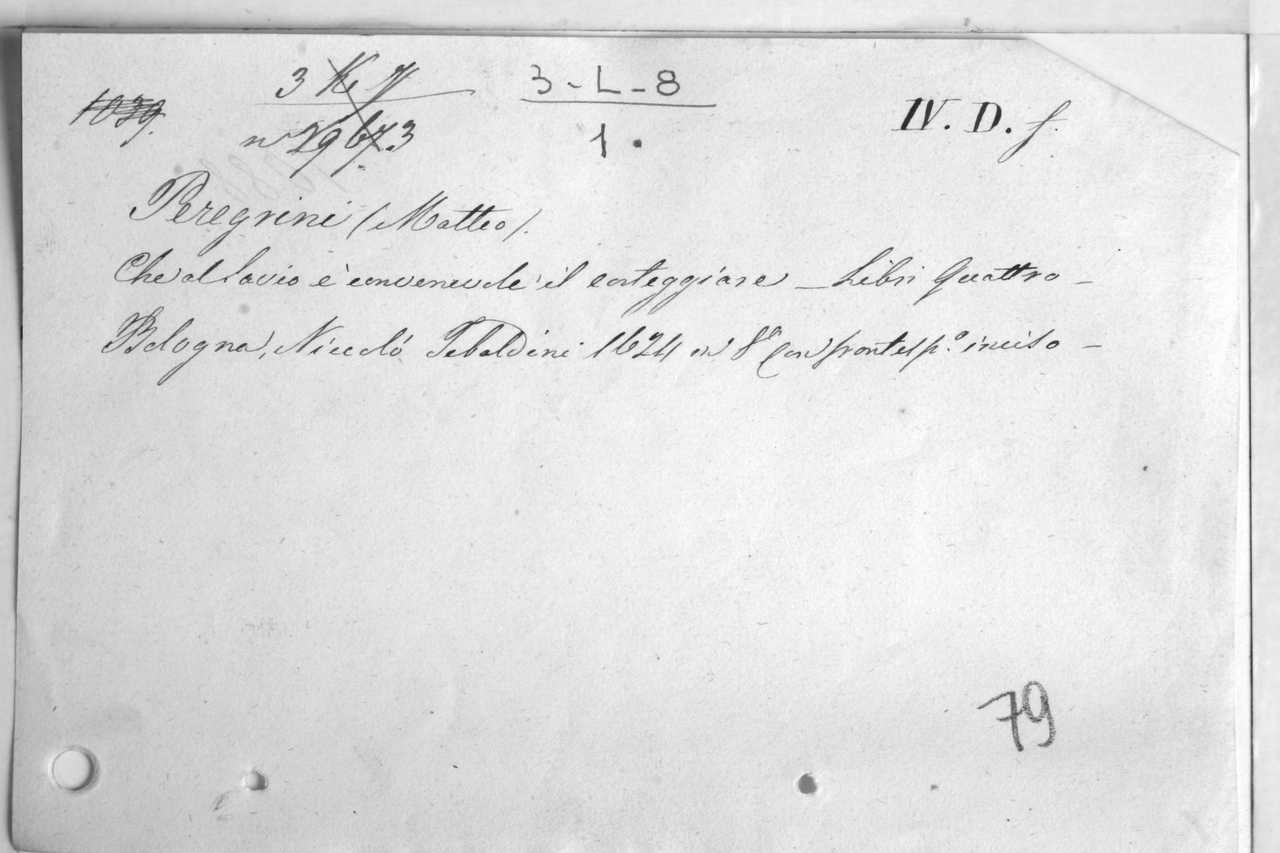 1039.
3 K 7
n 29673
3-L-8
1.
IV. D. f.
Peregrini (Matteo).
Che al Savio è convenevole il corteggiare – Libri Quattro –
Bologna, Niccolò Tebaldini 1624 in 8º con frontesp.º inciso –
79